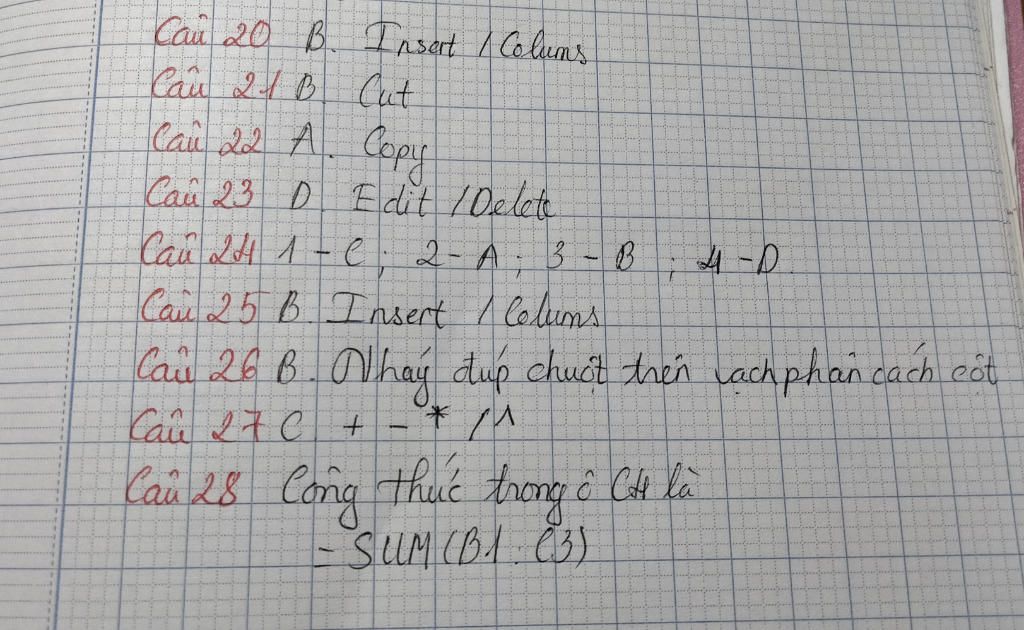 Câu 20 B. Insert / Colums
Câu 21 B Cut
Câu 22 A. Copy
Câu 23 D Edit / Delete
Câu 24 1 - C ; 2 - A ; 3 - B ; 4 - D
Câu 25 B. Insert / Colums
Câu 26 B. Nháy đúp chuột trên vạch phân cách cột
Câu 27 C + - * / ^
Câu 28 Công thức trong ô C4 là
= SUM (B1 : C3)